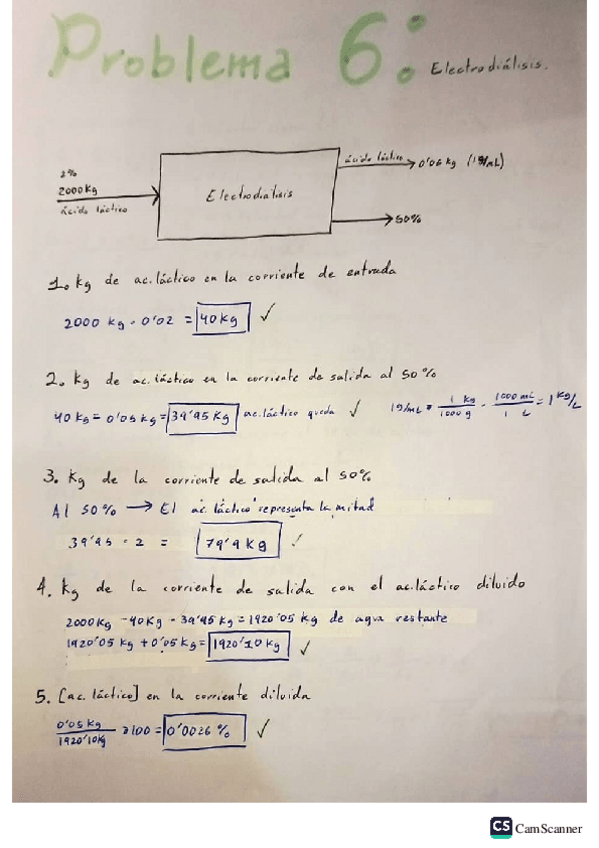 Problema 6: Electrodiálisis.
2%
2000 Kg
ácido láctico
Electrodiálisis
ácido láctico 0'05 kg (1g/mL)
50%
1. kg de ac. láctico en la corriente de entrada
2000 kg · 0'02 = 40 kg ✓
2. kg de ac. láctico en la corriente de salida al 50%
40 kg = 0'05 kg = 39'95 kg ac. láctico queda ✓ 1g/mL · 1 kg / 1000 g · 1000 mL / 1 L = 1 kg/L
3. kg de la corriente de salida al 50%
Al 50% → El ac. láctico representa la mitad
39'95 · 2 = 79'9 kg ✓
4. kg de la corriente de salida con el ac. láctico diluido
2000 kg - 40 kg - 39'95 kg = 1920'05 kg de agua restante
1920'05 kg + 0'05 kg = 1920'10 kg ✓
5. [ac. láctico] en la corriente diluida
0'05 kg / 1920'10 kg · 100 = 0'0026 % ✓
CS CamScanner